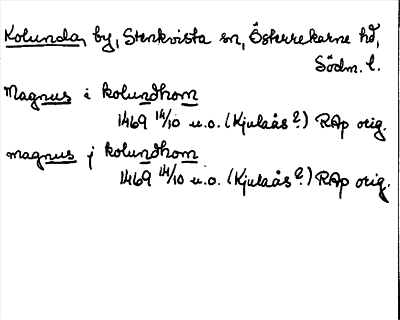 Kolunda, by, Stenkvista sn, Österrekarne hd,
Södm. l.
Magnus i kolundhom
1469 14/10 u.o. (Kjulaås?) RAp orig.
magnus j kolundhom
1469 14/10 u.o. (Kjulaås?) RAp orig.